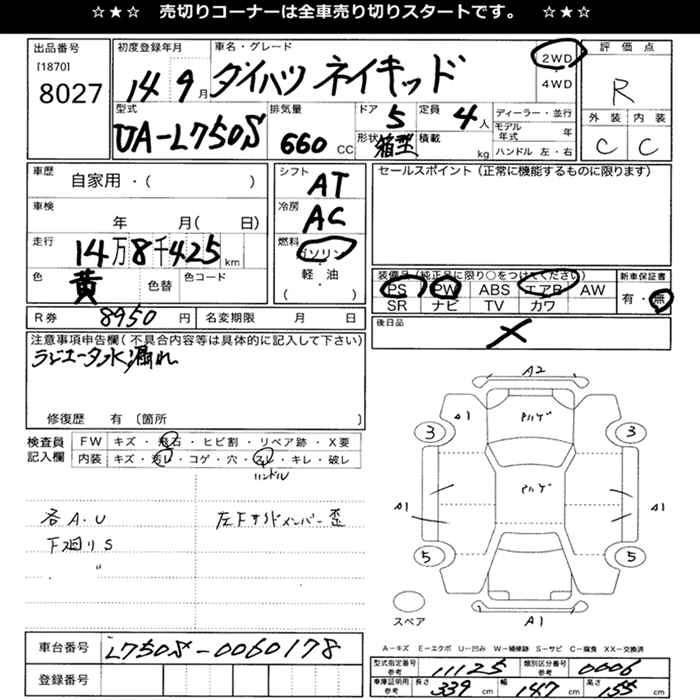 ☆★☆ 売切りコーナーは全車売り切りスタートです。 ☆★☆
出品番号
[1870]
8027
初度登録年月
14 9月
車名・グレード
ダイハツ ネイキッド
2WD
4WD
評価点
R
外装 内装
C C
型式
UA-L750S
排気量
660 CC
ドア 5
形状 箱型
定員 4人
積載 kg
ディーラー・並行
モデル年式 年
ハンドル 左・右
車歴
自家用・( )
車検
年 月( 日)
走行
14万8千425km
色
黄
色替
色コード
シフト
AT
冷房
AC
燃料
ガソリン
軽・油
( )
セールスポイント (正常に機能するものに限ります)
装備品 (純正品に限り○をつけてください)
PS PW ABS エアB AW
SR ナビ TV カワ
新車保証書
有・無
R券 8950円
名変期限 月 日
後日品
×
注意事項申告欄(不具合内容等は具体的に記入して下さい)
ラジエータ水漏れ
修復歴 有 〔箇所 〕
検査員記入欄
FW キズ・飛石・ヒビ割・リペア跡・X要
内装 キズ・汚レ・コゲ・穴・スレ・キレ・破レ
ハンドル
各A.U
下廻りS
〃
左下サイドメンバー歪
A2
A1
3 3
A1 A1
5 5
スペア
A1
車台番号
L750S-0060178
登録番号
A-キズ E-エクボ U-凹み W-補修跡 S-サビ C-腐食 XX-交換済
型式指定番号 参考 11125
類別区分番号 参考 0006
車庫証明用 参考 長さ 339cm 幅 147cm 高さ 155cm